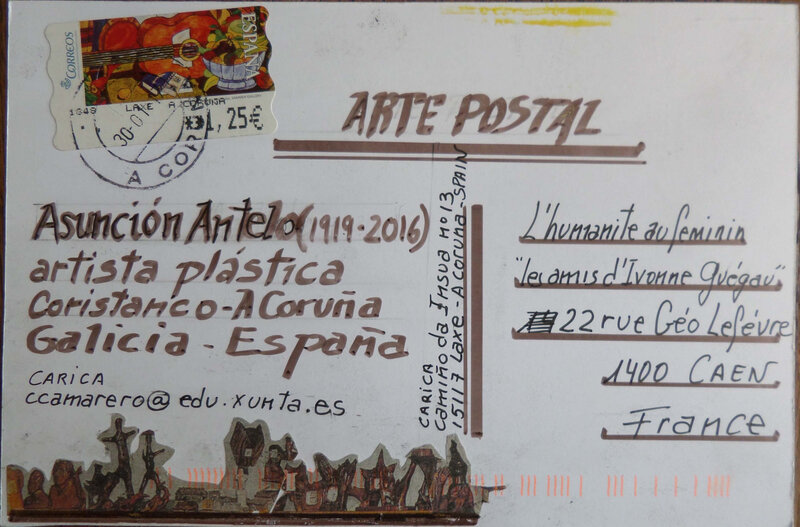 CORREOS
ESPAÑA
LAXE A CORUÑA
1,25€
30-01
A COR
ARTE POSTAL
Asunción Antelo (1919-2016)
artista plástica
Coristanco - A Coruña
Galicia - España
CARICA
ccamarero@edu.xunta.es
CARICA
Camiño da Insua nº 13
15117 Laxe - A Coruña - SPAIN
L'humanite au feminin
"les amis d'Ivonne Guégau"
22 rue Géo Lefévre
1400 CAEN
France